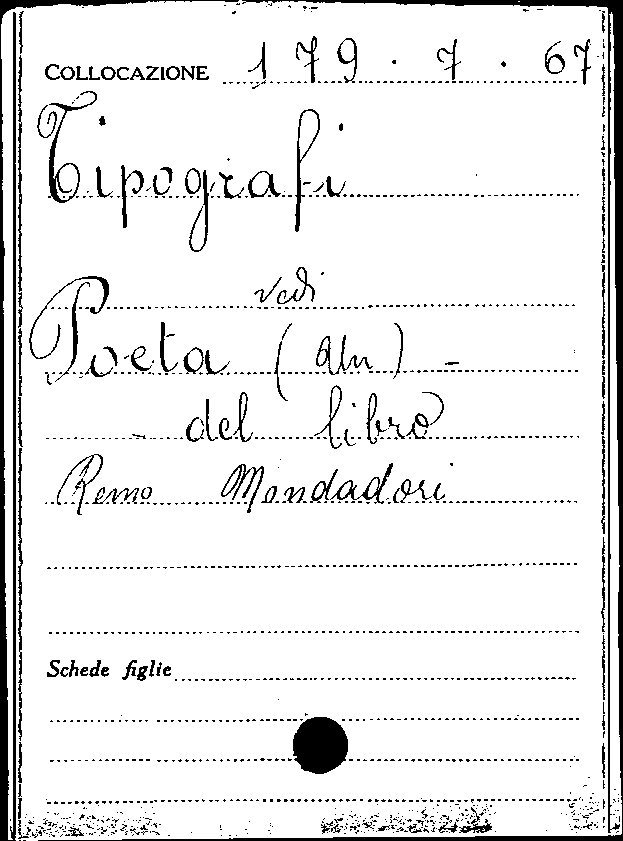 COLLOCAZIONE 179.7.67
Tipografi
vedi
Poeta (Un) -
del libro
Remo Mondadori
Schede figlie